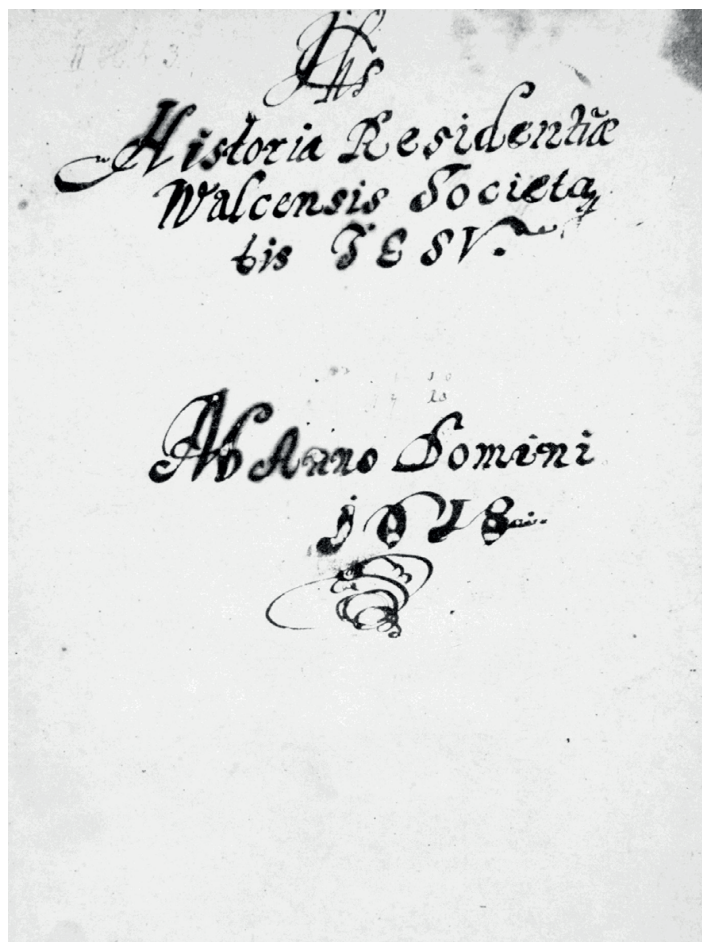 IHS
Historia Residentiæ
Walcensis Societa
tis IESV.
Ab Anno Domini
1618